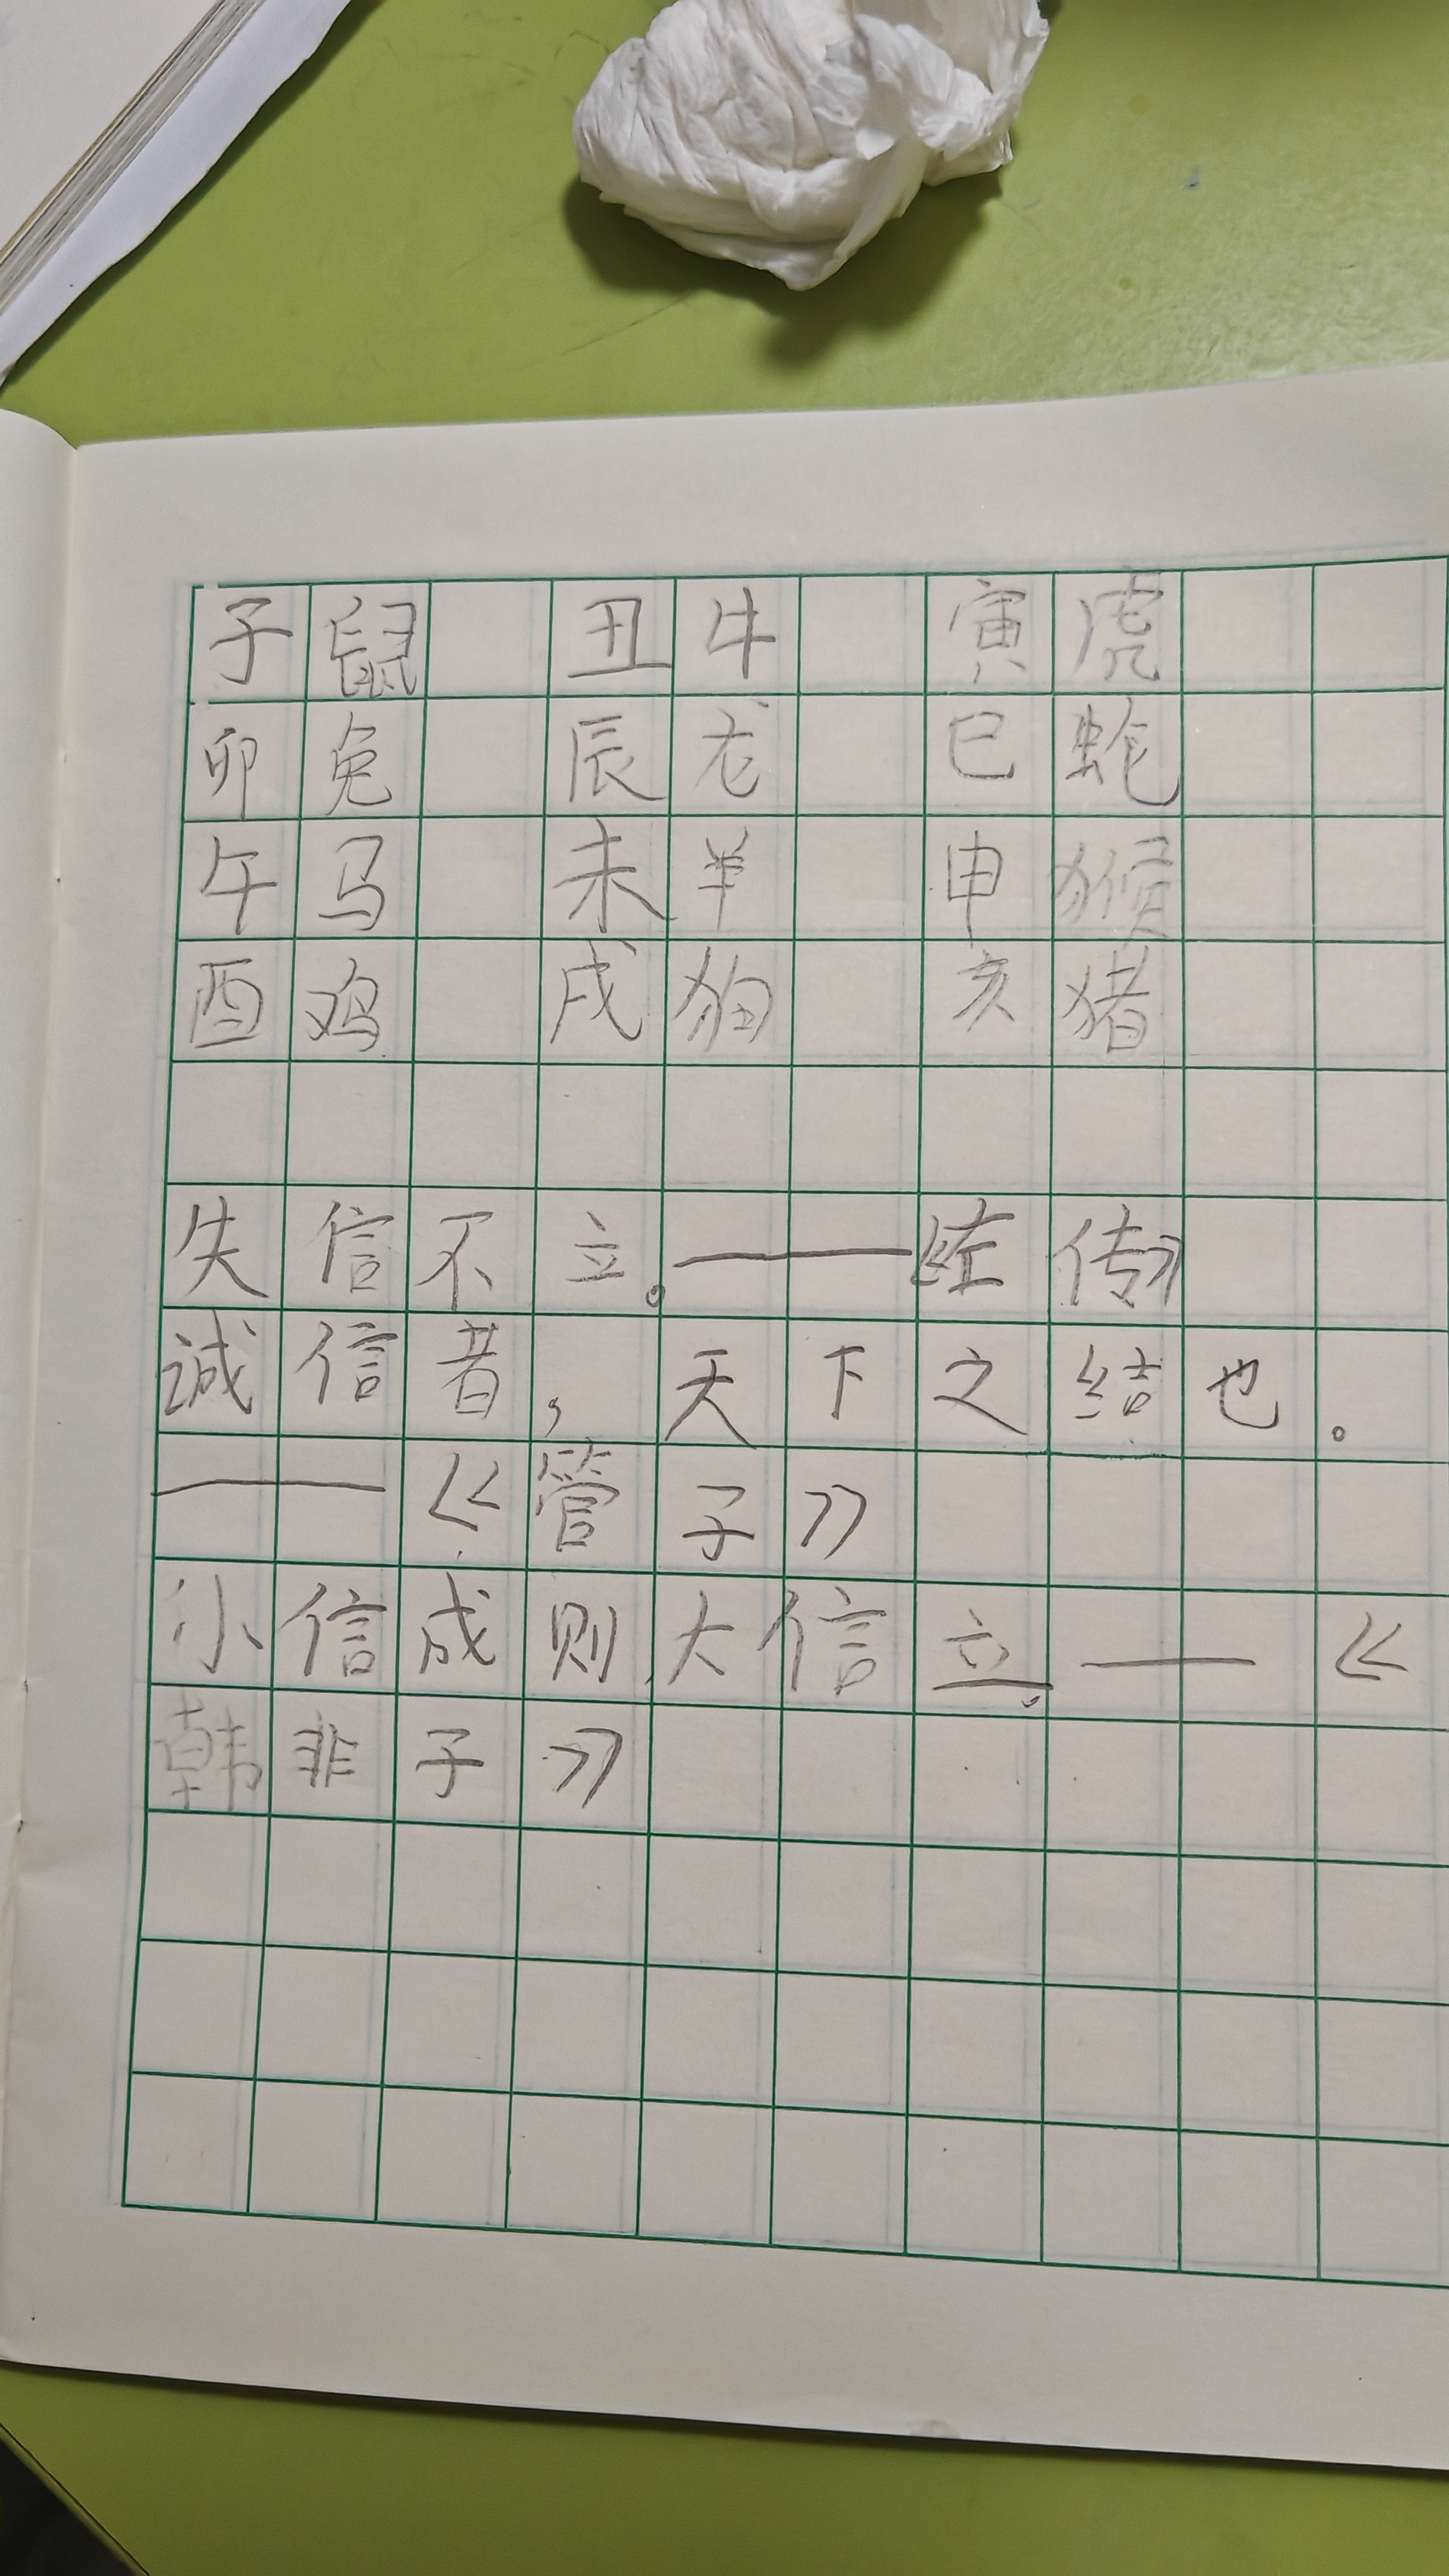 子鼠 丑牛 寅虎
卯兔 辰龙 巳蛇
午马 未羊 申猴
酉鸡 戌狗 亥猪
失信不立。——《左传》
诚信者，天下之结也。
——《管子》
小信成则大信立。——《
韩非子》